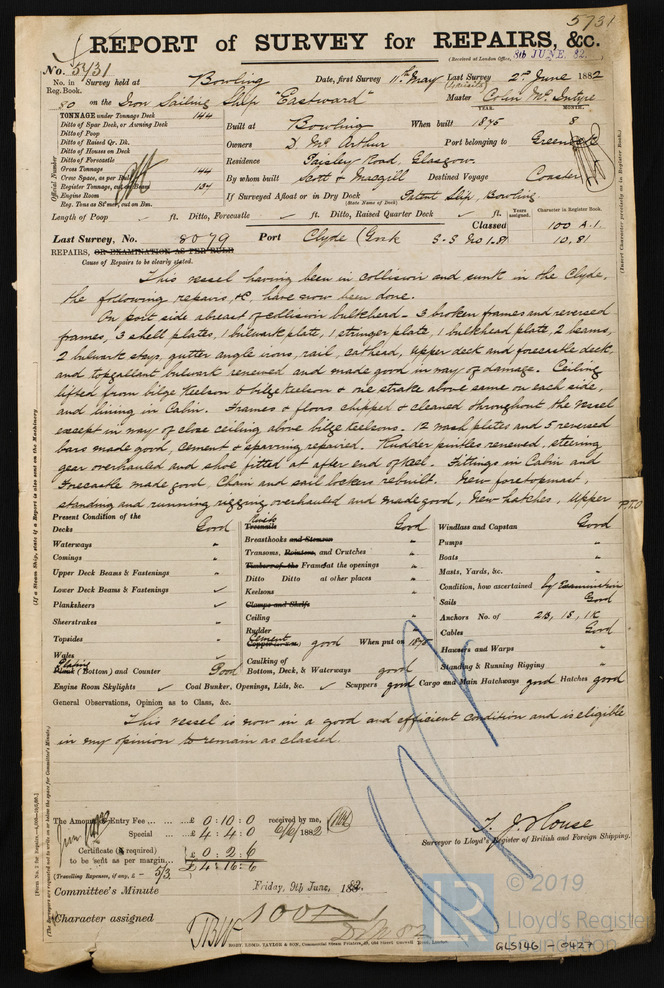 5731
REPORT of SURVEY for REPAIRS, &c.
(Received at London Office, 8th JUNE. 82.
No. 5731
No. in Reg. Book.
Survey held at Bowling Date, first Survey 11th May Last Survey 2nd June 1882
80 on the Iron Sailing Ship "Eastward" Master Colin McIntyre
TONNAGE under Tonnage Deck 144
Ditto of Spar Deck, or Awning Deck
Ditto of Poop
Ditto of Raised Qr. Dk.
Ditto of Houses on Deck
Ditto of Forecastle
Gross Tonnage 144
Register Tonnage, cut on Beam 134
Engine Room
Official Number
YEAR. MONTH.
Built at Bowling When built 1875 8
Owners D McArthur Port belonging to Greenock
Residence Paisley Road, Glasgow.
By whom built Scott & Macgill Destined Voyage Coaster
If Surveyed Afloat or in Dry Dock Patent Slip, Bowling.
(State Name of Dock)
Length of Poop ✓ ft. Ditto, Forecastle ✓ ft. Ditto, Raised Quarter Deck ✓ ft.
Years assigned. Character in Register Book.
Classed 100 A.1.
Last Survey, No. 8079 Port Clyde (Gnk S.S No 1-81 10,81
REPAIRS, OR EXAMINATION AS PER RULE
Cause of Repairs to be clearly stated.
This vessel having been in collision and sunk in the Clyde,
the following repairs, &c, have now been done.
On port side abreast of collision bulkhead - 3 broken frames and reversed
frames, 3 shell plates, 1 bulwark plate, 1 stringer plate, 1 bulkhead plate, 2 beams,
2 bulwark stays, gutter angle irons, rail, cathead, upper deck and forecastle deck,
and topgallant bulwark renewed and made good in way of damage. Ceiling
lifted from bilge keelson to bilge keelson & one strake above same on each side,
and lining in Cabin. Frames & floors chipped & cleaned throughout the vessel
except in way of close ceiling above bilge keelsons. 12 wash plates and 5 reversed
bars made good, cement & sparring repaired. Rudder pintles renewed, steering
gear overhauled and shoe fitted at after end of keel. Fittings in Cabin and
Forecastle made good. Chain and sail lockers rebuilt. New foretopmast,
standing and running rigging overhauled and made good, New hatches, Upper
P.T.O
Present Condition of the
Decks Good
Waterways "
Comings "
Upper Deck Beams & Fastenings "
Lower Deck Beams & Fastenings ✓
Planksheers ✓
Sheerstrakes "
Topsides "
Wales
Plating (Bottom) and Counter Good
Rivets Treenails Good
Breasthooks and Stemson "
Transoms, Pointers, and Crutches "
Timbers of the Frame at the openings "
Ditto Ditto at other places "
Keelsons "
Clamps and Shelfs
Ceiling "
Rudder "
Cement good When put on 1875
Caulking of Bottom, Deck, & Waterways good
Windlass and Capstan Good
Pumps "
Boats "
Masts, Yards, &c. "
Condition, how ascertained by Examination
Sails Good
Anchors No. of 2B, 1S, 1K
Cables Good
Hawsers and Warps "
Standing & Running Rigging "
Engine Room Skylights ✓ Coal Bunker, Openings, Lids, &c. ✓ Scuppers good Cargo and Main Hatchways good Hatches good
General Observations, Opinion as to Class, &c.
This vessel is now in a good and efficient condition and is eligible
in my opinion to remain as classed.
The Amount Entry Fee ... £ 0 : 10 : 0 received by me,
Special ... £ 4 : 4 : 0 6/6/1882
Certificate (if required) £ 0 : 2 : 6
to be sent as per margin... £ 4 : 16 : 6
(Travelling Expenses, if any, £ - 5/3.
T. J. House
Surveyor to Lloyd's Register of British and Foreign Shipping.
Committee's Minute Friday, 9th June, 1882.
Character assigned 100A
(If a Steam Ship, state if a Report is also sent on the Machinery
(The Surveyors are requested not to write on or below the space for Committee's Minute.)
(Insert Character precisely as in Register Book.)
LR
© 2019
Lloyd's Register
Foundation
GLS146 - 0427